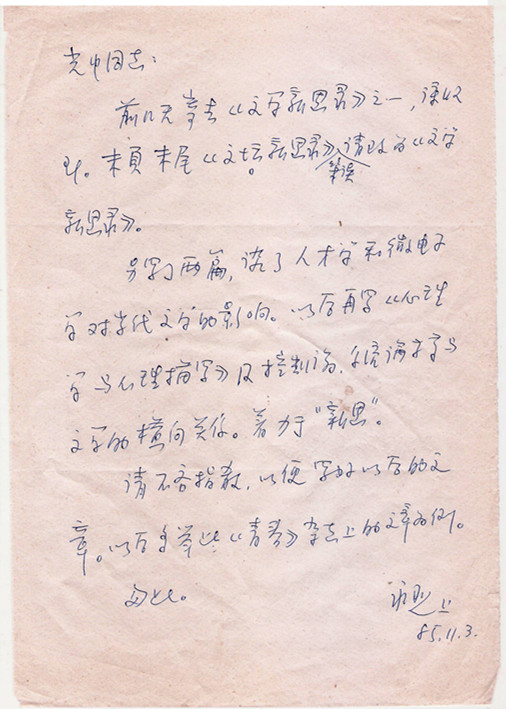 光中同志：
前几天寄去《文学新思录》之一，谅收
到。末页末尾《文坛新思录》请改为《文学
笔误
新思录》。
另写了两篇，谈了人才学和微电子
学对当代文学的影响。以后再写《心理
学与心理描写》及控制论、信息论等与
文学的横向关系。着力于“新思”。
请不吝指教，以便写好以后的文
章。以后多举些《青春》杂志上的文章为例。
匆此。
上
85.11.3.